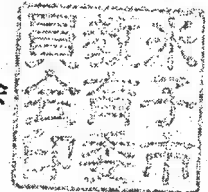 米子市
教育委
員会印